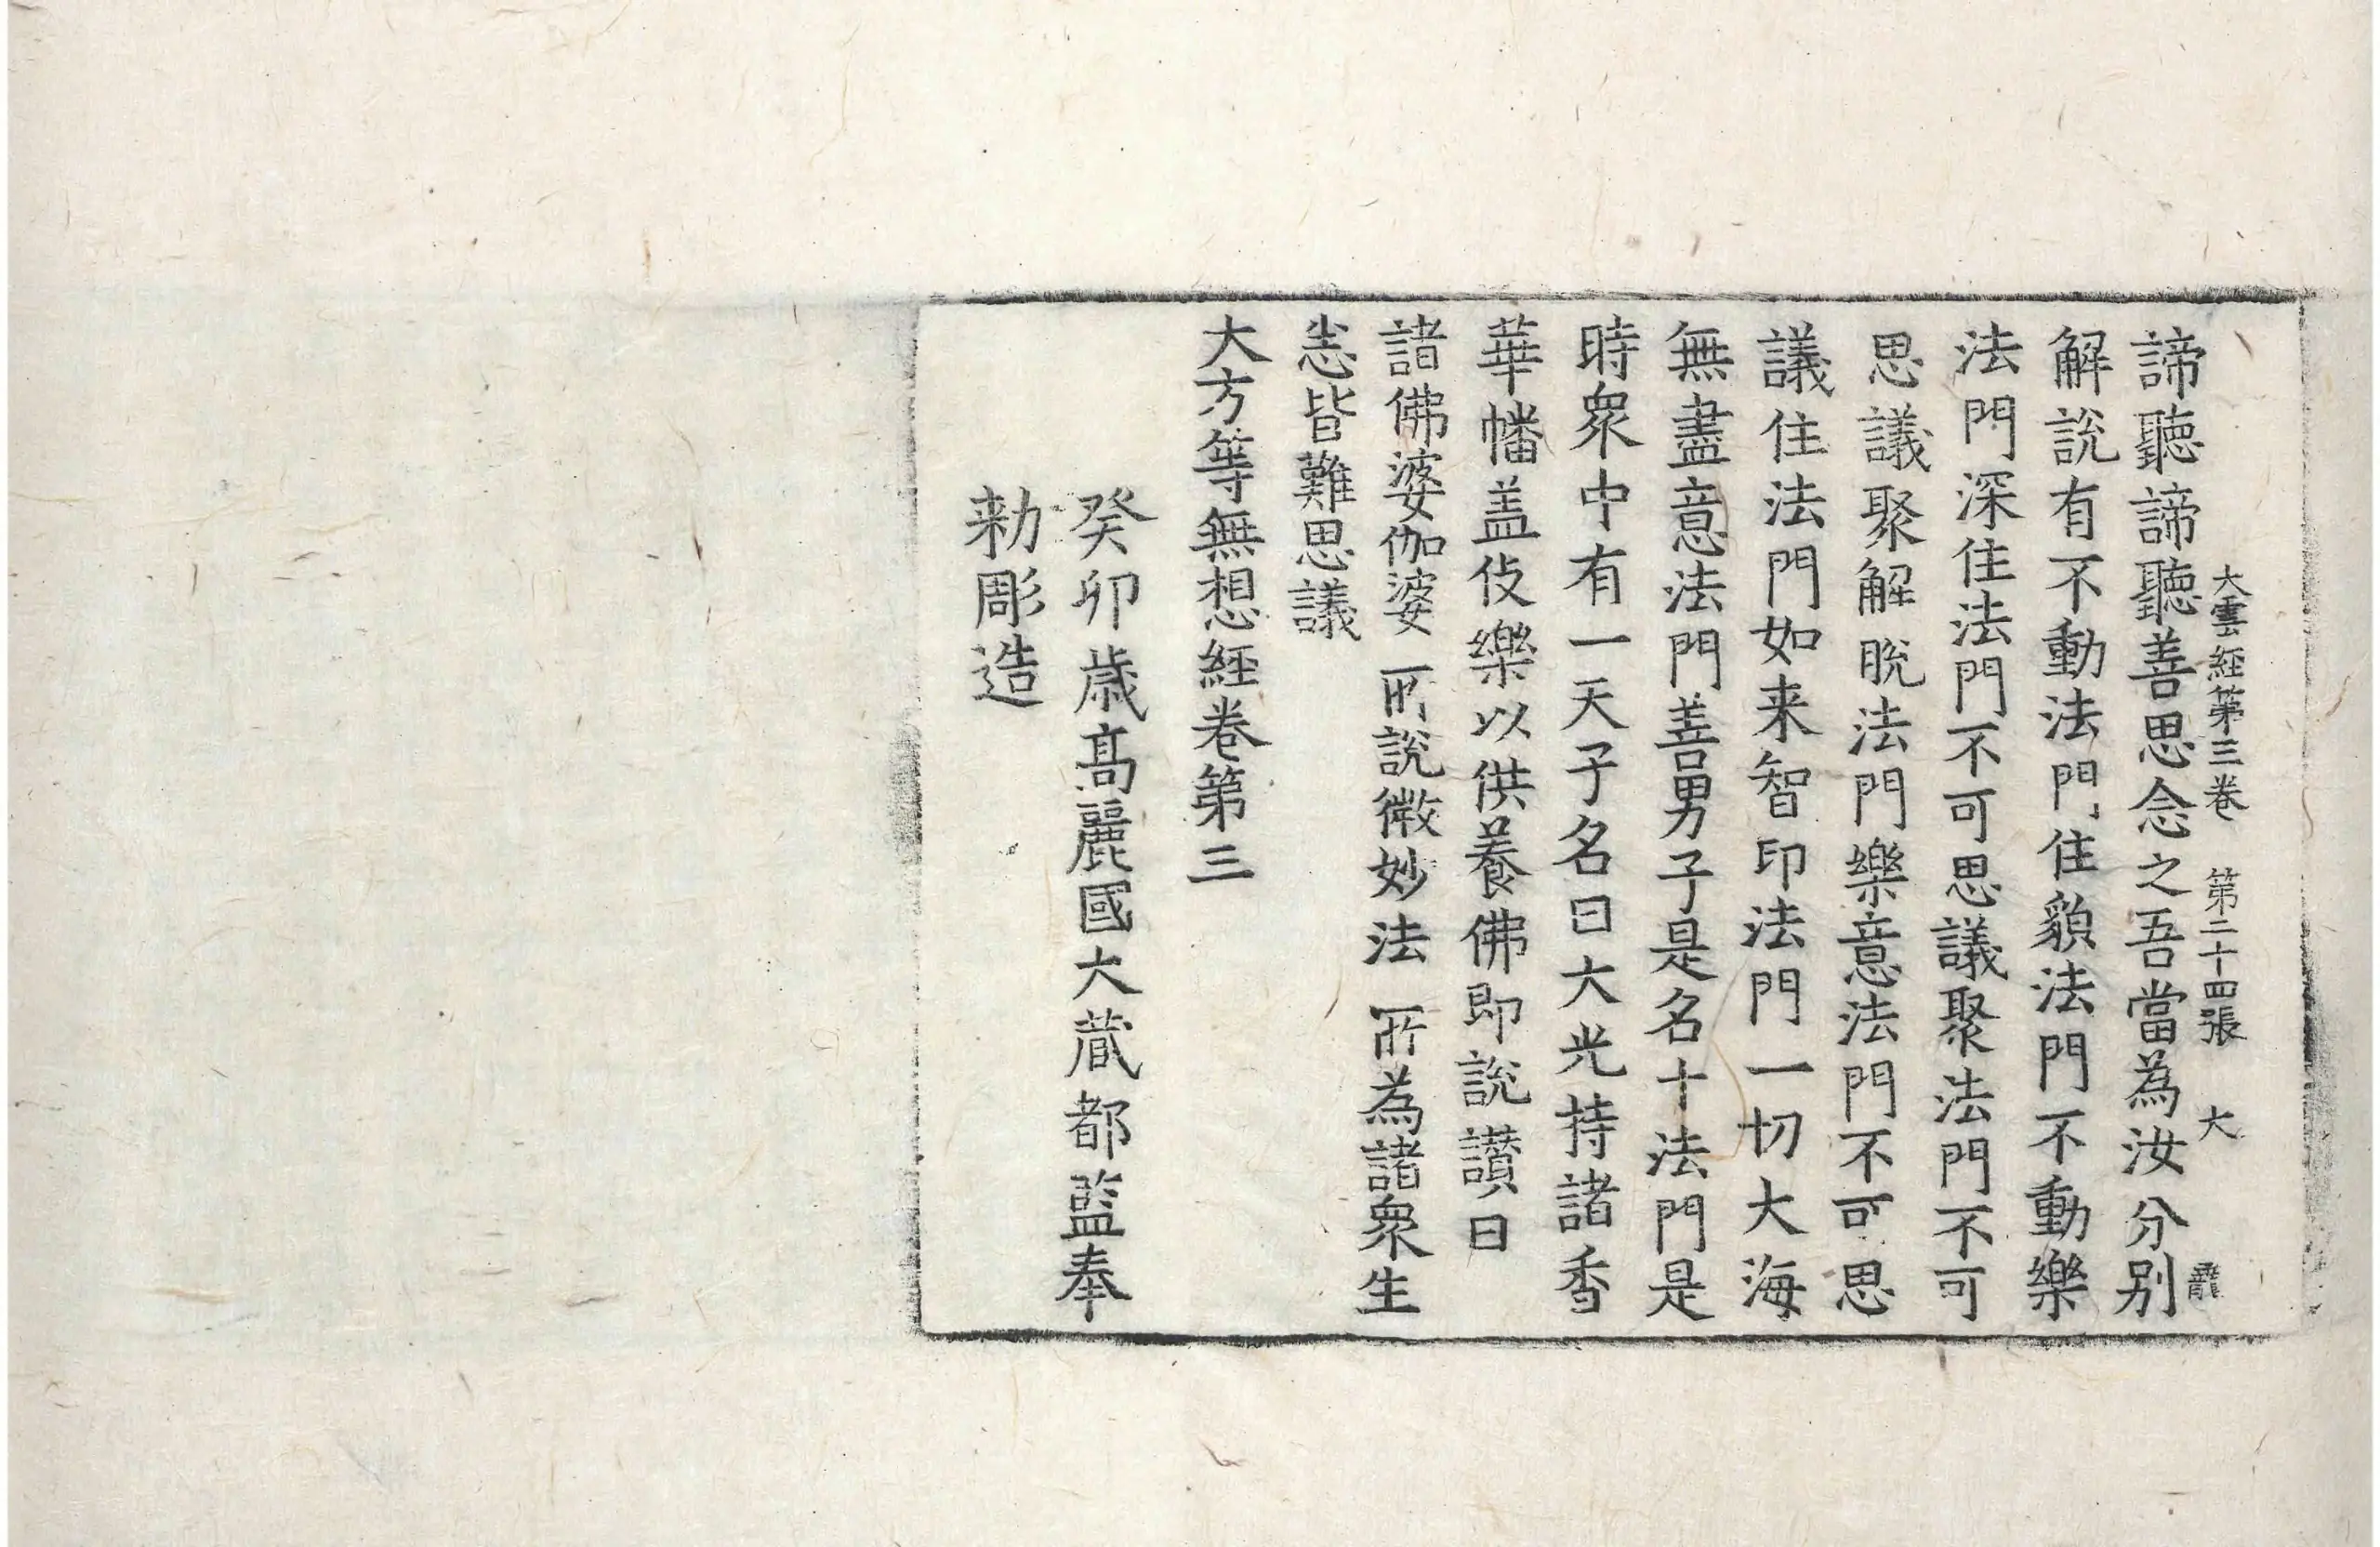 大雲經第三卷 第二十四張 大
諦聽諦聽善思念之吾當為汝分別
解說有不動法門住䫉法門不動樂
法門深住法門不可思議聚法門不可
思議聚解脫法門樂意法門不可思
議住法門如来智印法門一切大海
無盡意法門善男子是名十法門是
時眾中有一天子名曰大光持諸香
華幡盖伎樂以供養佛即說讃曰
諸佛婆伽婆 所說微妙法 所為諸眾生
悉皆難思議
大方等無想経卷第三
癸卯歳髙麗國大蔵都監奉
勑彫造